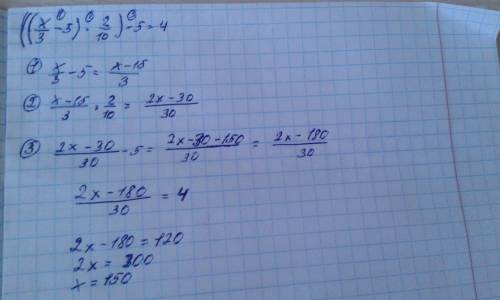 ((x/3 - 5) · 2/10) - 5 = 4
① x/3 - 5 = (x-15)/3
② (x-15)/3 · 2/10 = (2x-30)/30
③ (2x-30)/30 - 5 = (2x-30-150)/30 = (2x-180)/30
(2x-180)/30 = 4
2x-180 = 120
2x = 300
x = 150